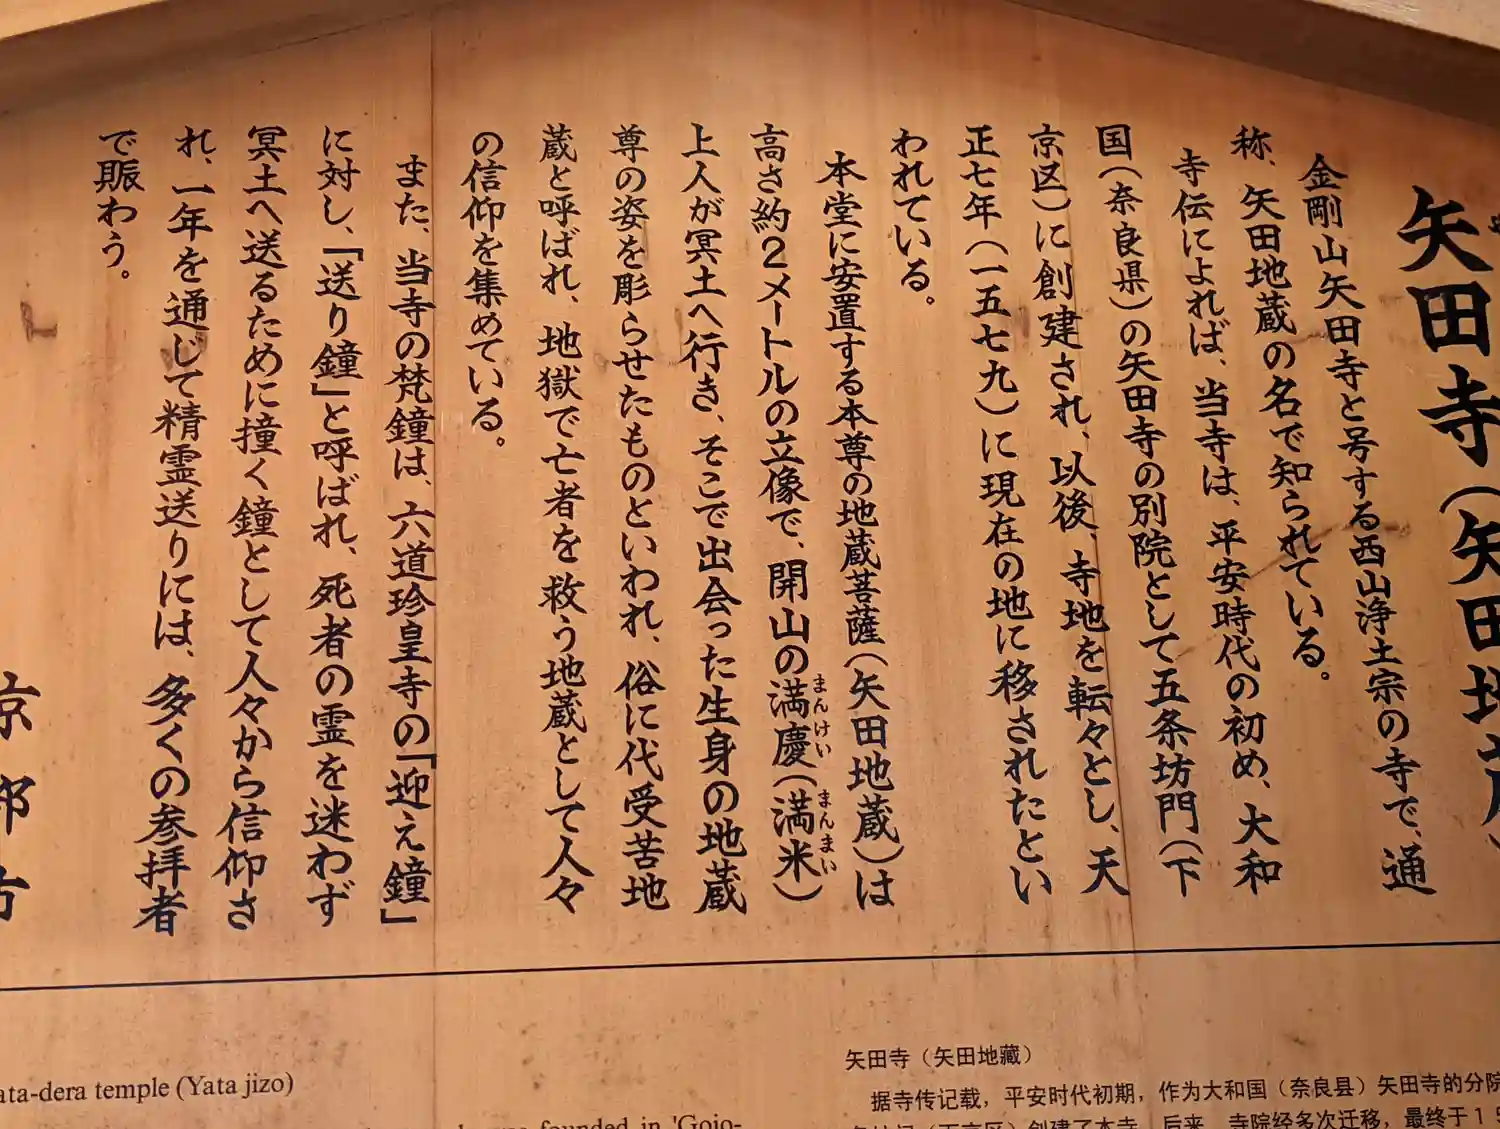 矢田寺（矢田地蔵）
金剛山矢田寺と号する西山浄土宗の寺で、通
称、矢田地蔵の名で知られている。
寺伝によれば、当寺は、平安時代の初め、大和
国（奈良県）の矢田寺の別院として五条坊門（下
京区）に創建され、以後、寺地を転々とし、天
正七年（一五七九）に現在の地に移されたとい
われている。
本堂に安置する本尊の地蔵菩薩（矢田地蔵）は
高さ約２メートルの立像で、開山の満慶（満米）
まんけい まんまい
上人が冥土へ行き、そこで出会った生身の地蔵
尊の姿を彫らせたものといわれ、俗に代受苦地
蔵と呼ばれ、地獄で亡者を救う地蔵として人々
の信仰を集めている。
また、当寺の梵鐘は、六道珍皇寺の「迎え鐘」
に対し、「送り鐘」と呼ばれ、死者の霊を迷わず
冥土へ送るために撞く鐘として人々から信仰さ
れ、一年を通じて精霊送りには、多くの参拝者
で賑わう。
京都市
ata-dera temple (Yata jizo)
founded in 'Gojo-
矢田寺（矢田地藏）
据寺传记载，平安时代初期，作为大和国（奈良县）矢田寺的分院
创建了本寺。后来，寺院经多次迁移，最终于１５